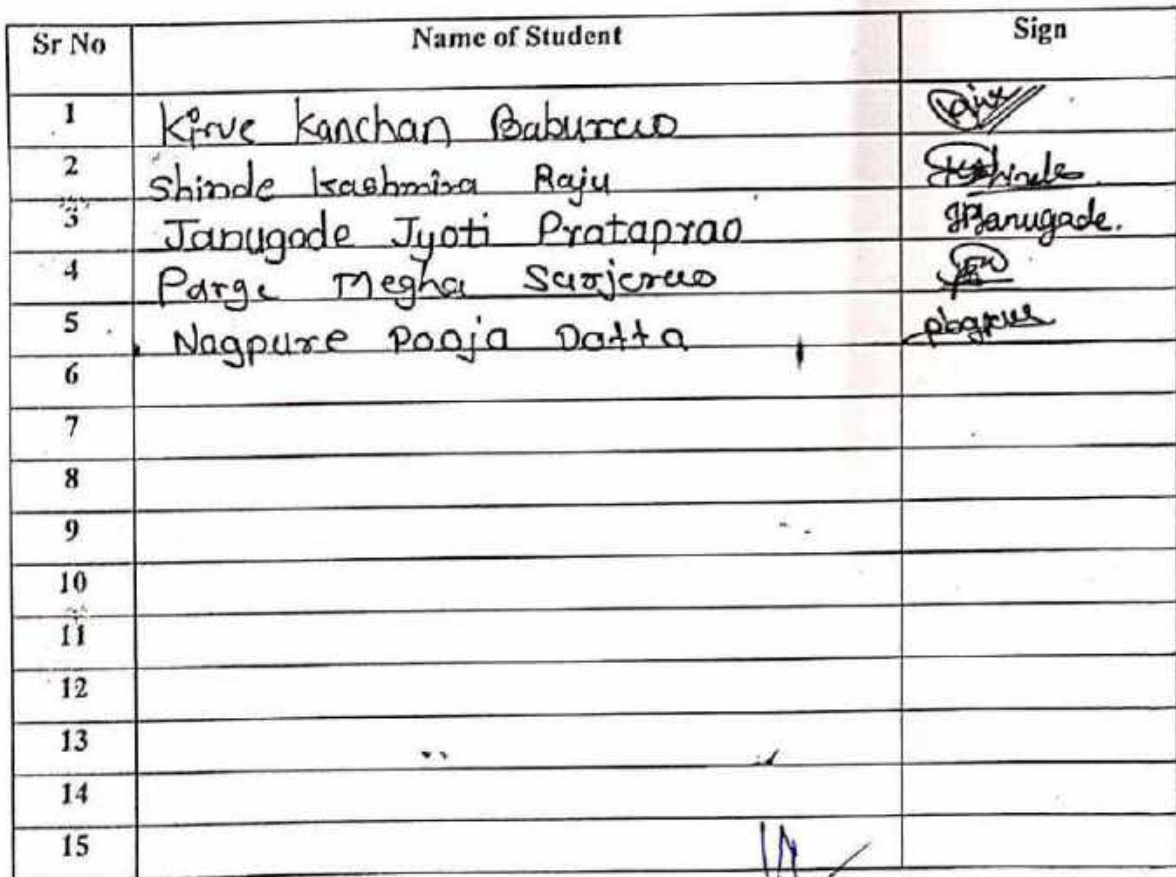 Sr No Name of Student Sign
1 Kirve Kanchan Baburao
2 Shinde Kashmira Raju KShinde
3 Janugade Jyoti Prataprao JPJanugade.
4 Parge Megha Sarjerao
5 Nagpure Pooja Datta
6
7
8
9
10
11
12
13
14
15